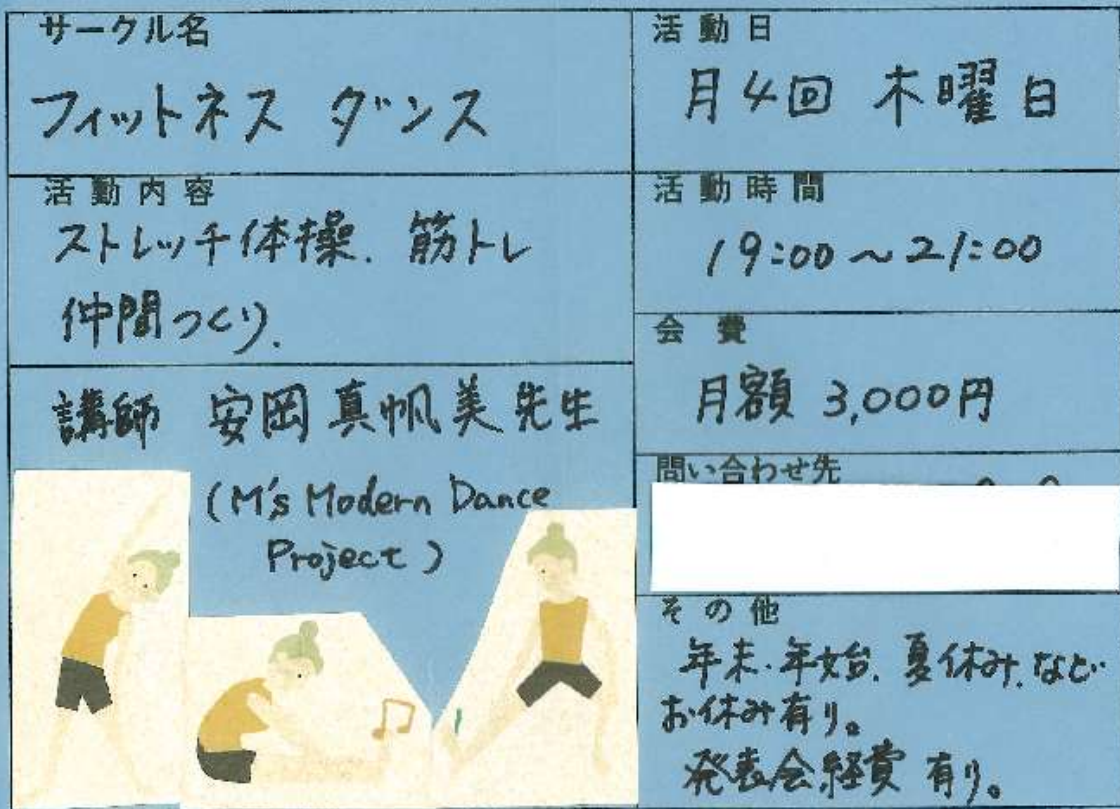 サークル名
フィットネス ダンス
活動内容
ストレッチ体操. 筋トレ
仲間つくり.
講師 安岡真帆美先生
(M's Modern Dance
Project)
活動日
月4回 木曜日
活動時間
19:00～21:00
会費
月額 3,000円
問い合わせ先
その他
年末.年始. 夏休み.など
お休み有り。
発表会経費 有り。